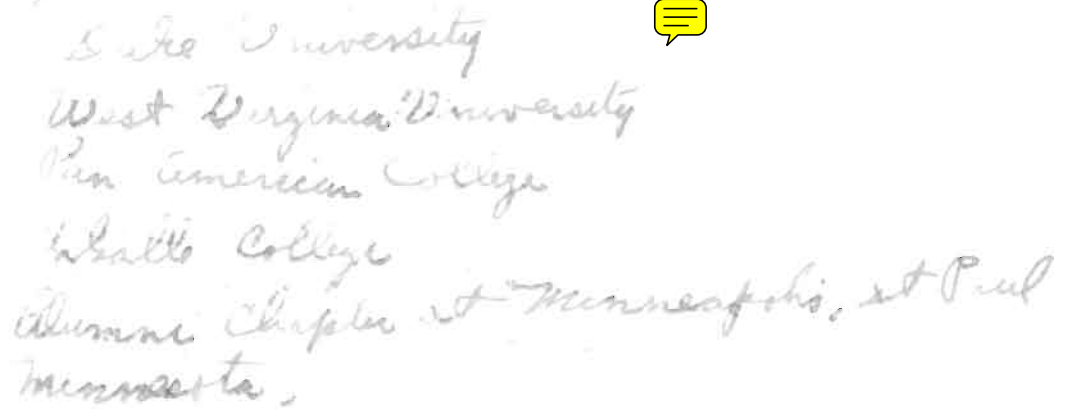 Duke University
West Virginia University
Pan American College
College
Alumni Chapter at Minneapolis, St Paul
Minnesota.